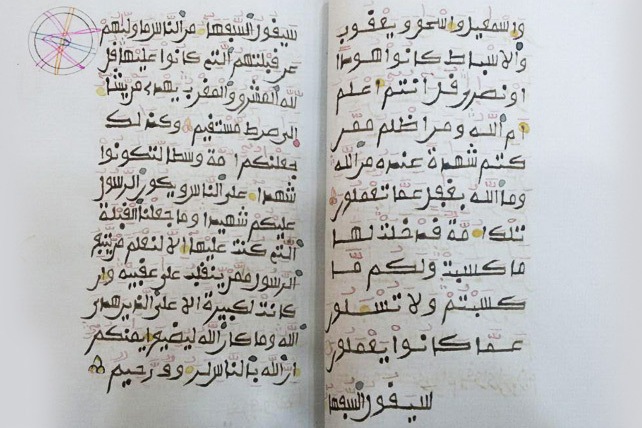 واسمعيل واسحق ويعقوب
والاسباط كانوا هودا
او نصرى قل آنتم اعلم
ام الله ومن اظلم ممن
كتم شهدة عنده من الله
وما الله بغفل عما تعملون
تلك امة قد خلت لها
ما كسبت ولكم ما
كسبتم ولا تسلون
عما كانوا يعملون
سيقول السفها
سيقول السفها من الناس ما وليهم
عن قبلتهم التي كانوا عليها قل
لله المشرق والمغرب يهدي من يشا
الى صرط مستقيم وكذلك
جعلنكم امة وسطا لتكونوا
شهدا على الناس ويكون الرسول
عليكم شهيدا وما جعلنا القبلة
التي كنت عليها الا لنعلم من يتبع
الرسول ممن ينقلب على عقبيه وان
كانت لكبيرة الا على الذين هدى
الله وما كان الله ليضيع ايمنكم
ان الله بالناس لروف رحيم